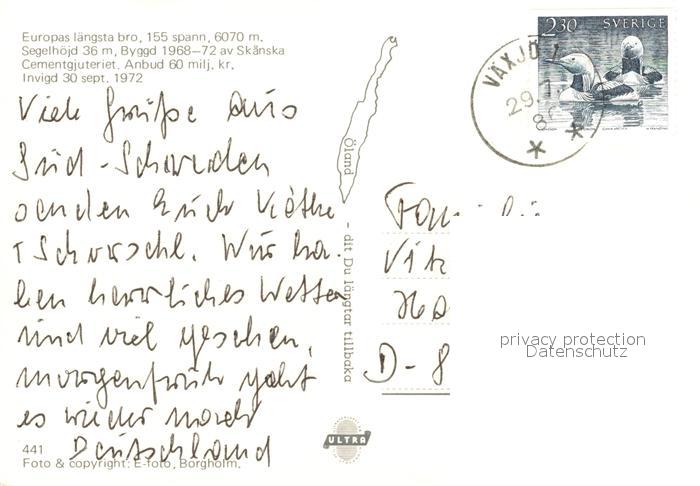 Europas längsta bro, 155 spann, 6070 m.
Segelhöjd 36 m, Byggd 1968–72 av Skånska
Cementgjuteriet. Anbud 60 milj. kr.
Invigd 30 sept. 1972
Viele Grüße aus
Süd-Schweden
senden Euch Käthe
+ Schorschl. Wir ha-
ben herrliches Wetter
und viel gesehen,
morgenfrüh geht
es wieder nach
Deutschland
441
Foto & copyright: E-foto, Borgholm.
Öland - dit Du längtar tillbaka
ULTRA
2.30 SVERIGE
VÄXJÖ 1
29.7.
D-8
privacy protection
Datenschutz